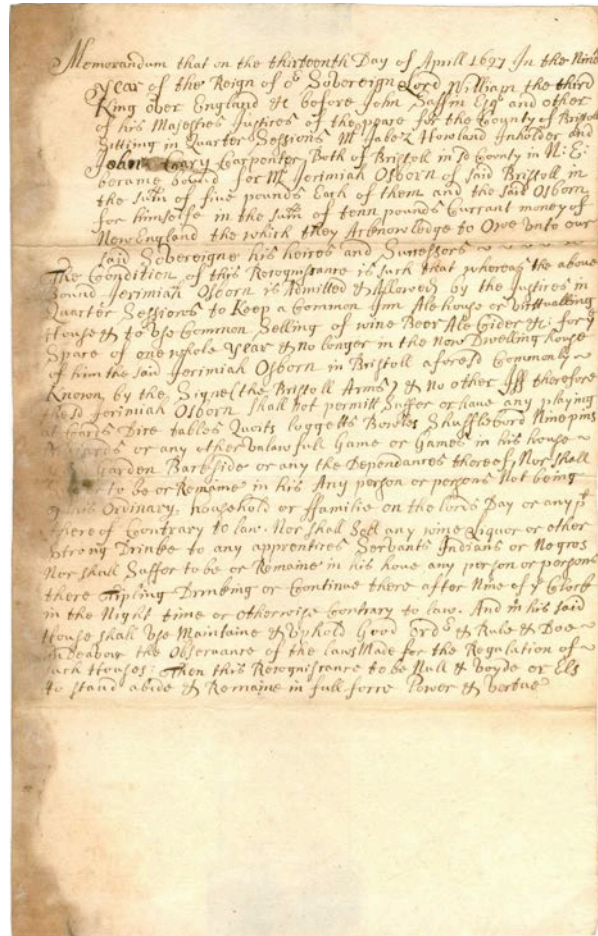 Memorandum that on the thirteenth Day of Aprill 1697 In the Nin
year of the Reign of oʳ Sovereign Lord William the third
King over England &c before John Saffin Esqʳ and other
of his Majesties Justices of the peace for the County of Bristoll
Sitting in Quarter Sessions Mʳ Jabez Howland Inholder and
John Cary Carpenter, Both of Bristoll in sd County in N: E:
became bound for Mʳ Jerimiah Osborn of said Bristoll in
the sum of five pounds Each of them and the said Osborn
for himselfe in the sum of tenn pounds Currant money of
New England the which they Acknowledge to Owe unto our
said Sovereigne his heires and Successors ~ ~ ~ ~ ~ ~
The Condition of this Recognisance is such that whereas the above
Bound Jerimiah Osborn is Admitted & Allowed by the Justices in
Quarter Sessions to Keep a Common Inn Ale house or Victualling
House & to use Common Selling of wine Beer Ale Cider &c: for yᵉ
Space of one whole year & no longer in the now Dwelling house
of him the said Jerimiah Osborn in Bristoll aforesd Commonly ~
Known by the Signe (the Bristoll Arms) & No other Iff therefore
the sd Jerimiah Osborn shall Not permitt Suffer or have any playing
at Cards Dice tables Quoits loggetts Bowles Shuffleboard Ninepins
Billiards or any other unlawfull Game or Games in his house ~
Garden Backside or any the Dependances thereof, Nor shall
to be or Remaine in his Any person or persons Not being
of his Ordinary household or ffamilie on the lords Day or any pᵗ
thereof Contrary to law. Nor shall Sell any wine Liquor or other
Strong Drinke to any apprentices Servants Indians or Negros
Nor shall Suffor to be or Remaine in his houe any person or persons
there Tipling Drinking or Continue there after Nine of yᵉ Clock
in the Night time or otherwise Contrary to law. And in his said
House shall use Maintaine & Uphold Good ordʳ & Rule & Doe ~
Endeavour the Observance of the laws Made for the Regulation of ~
such Houses: Then this Recognisrance to be Null & voyde or Els
to stand abide & Remaine in full force Power & Vertue